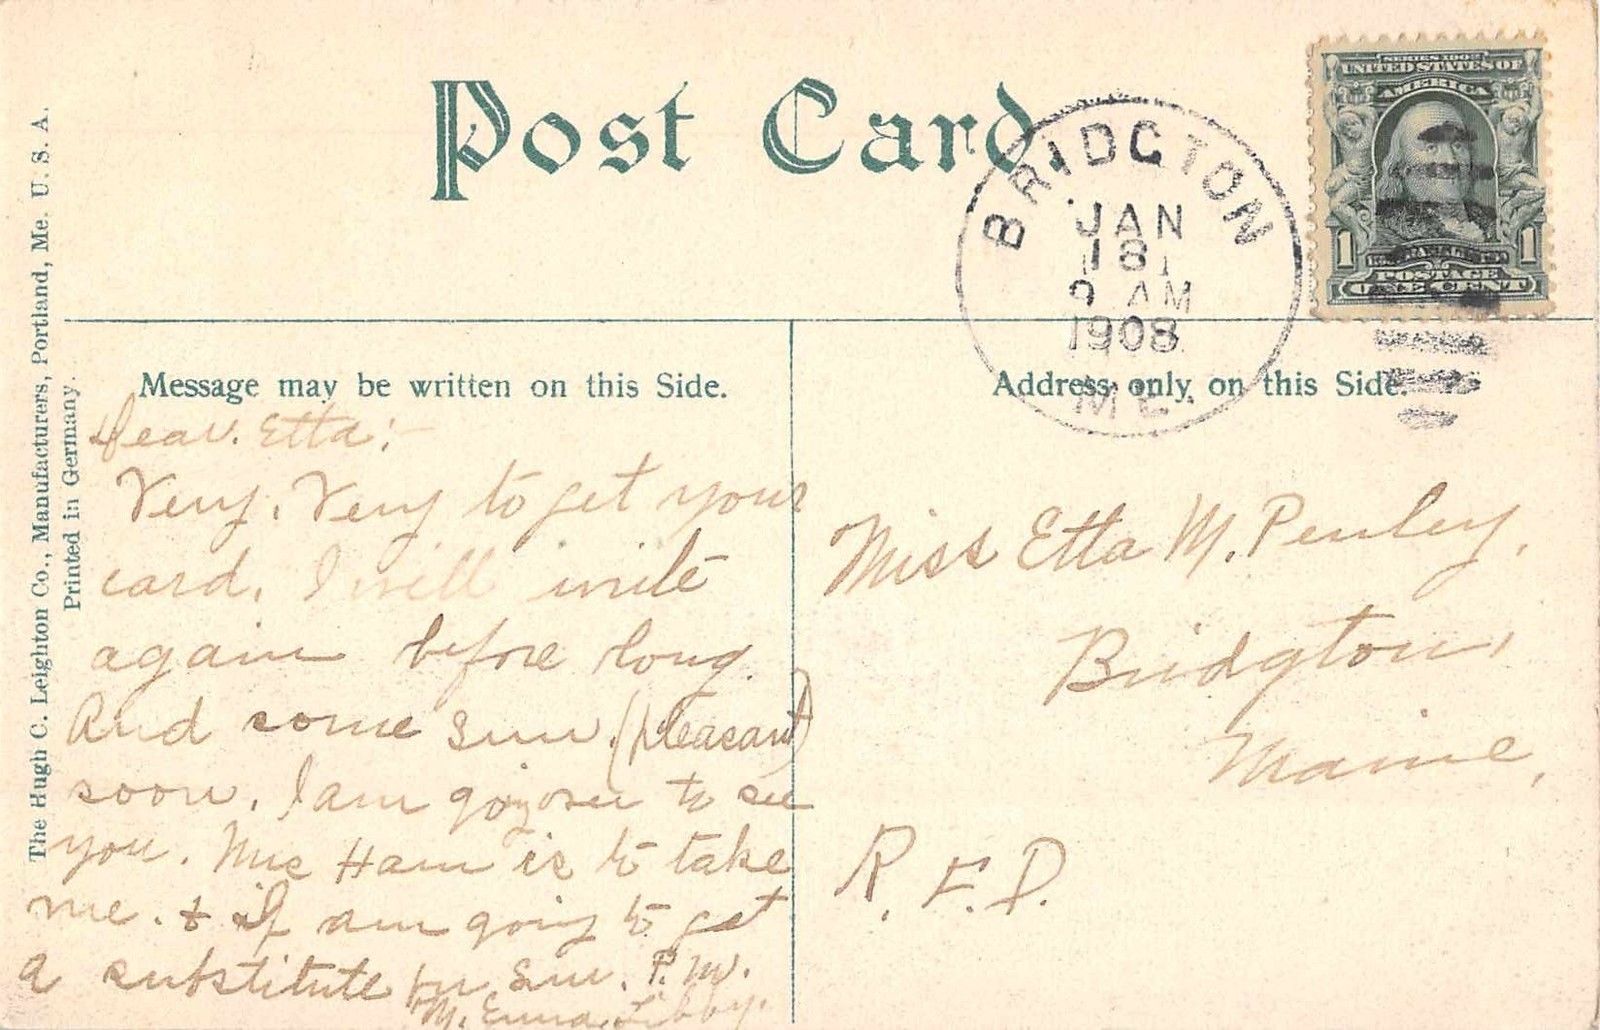 Post Card.
BRIDGTON
JAN
18
9 AM
1908
ME.
SERIES 1902
UNITED STATES OF
AMERICA
1 1
POSTAGE
ONE CENT
The Hugh C. Leighton Co., Manufacturers, Portland, Me. U. S. A.
Printed in Germany.
Message may be written on this Side.
Dear. Etta:-
Very, Very to get your
card. I will write
again before long.
And some Sun. (pleasant)
soon. I am going over to see
you. Mrs Ham is to take
me. & if am going to get
a substitute for Sun. P.M.
M. Emma Libby.
Address only on this Side.
Miss Etta M. Penley,
Bridgton,
Maine,
R. F. D.